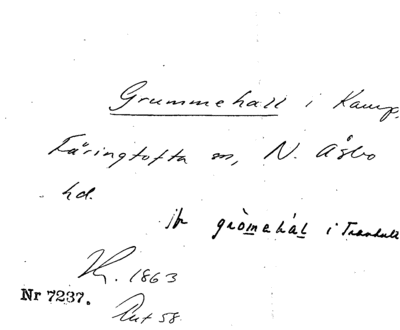 Grummehall i Kamp,
Färingtofta sn, N. Åsbo
hd.
jfr gròmehál i Tranhult
1863
Nr 7237.
Ant 58